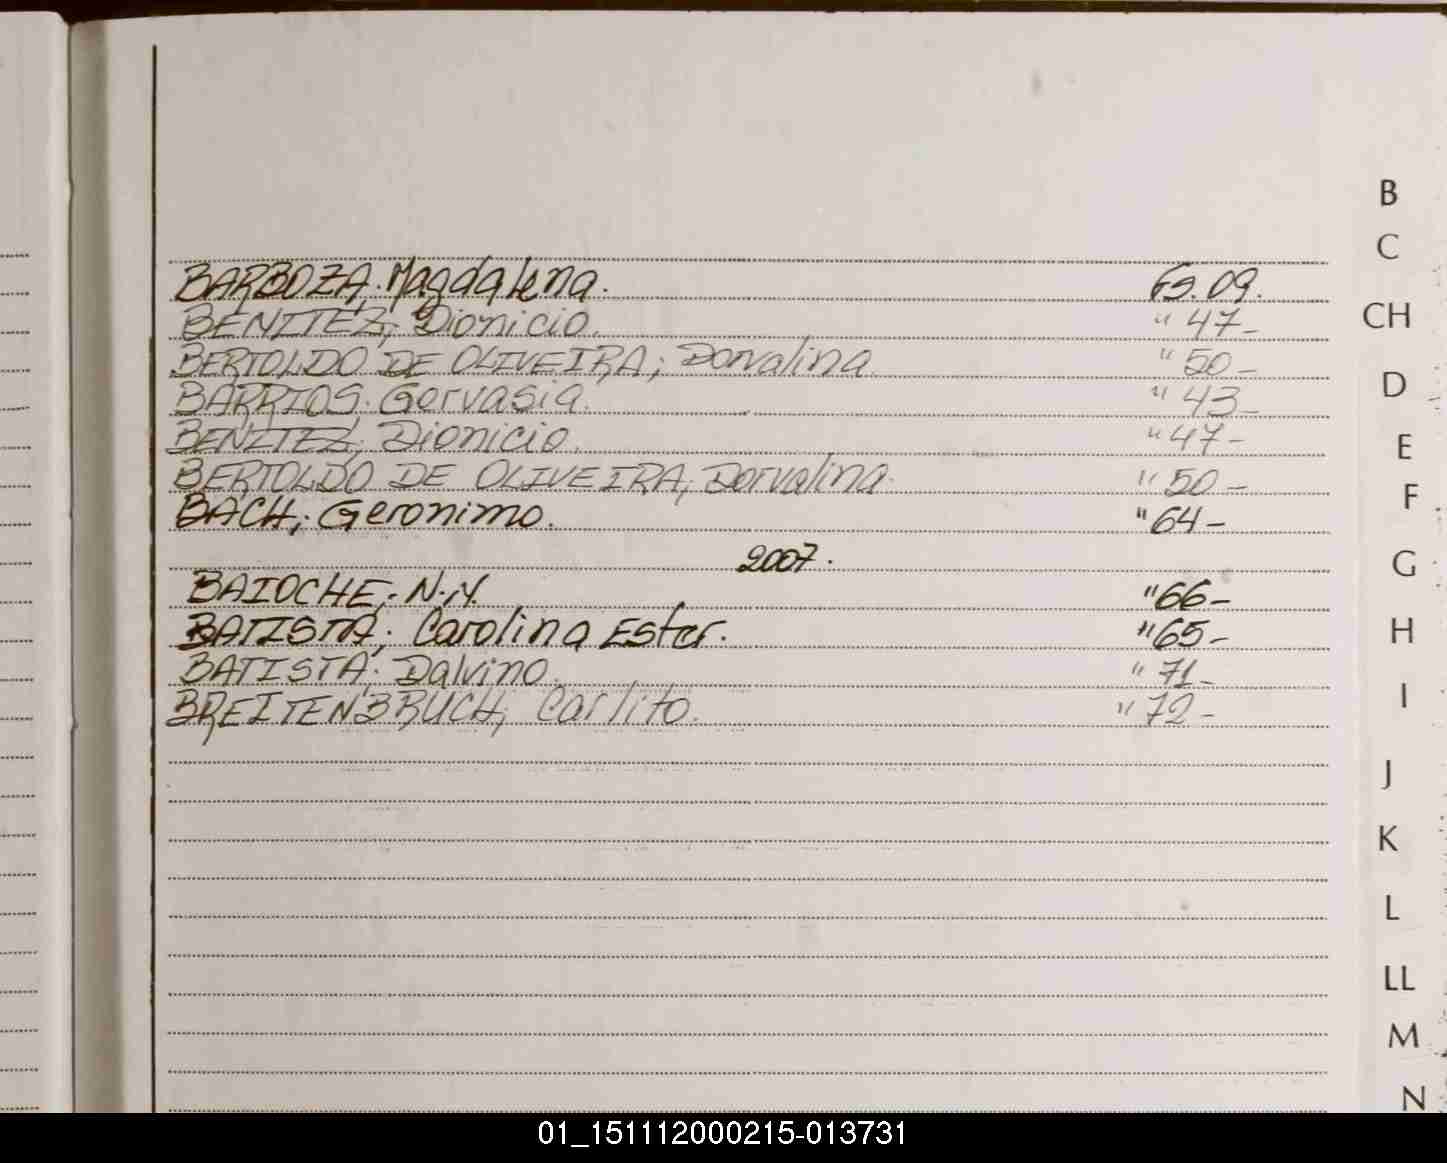 BARBOZA, Magdalena. Fs. 09.
BENITEZ, Dionicio. " 47-
BERTOLDO DE OLIVEIRA; Dorvalina. " 50-
BARRIOS. Gervasia. " 43-
BENITEZ, Dionicio. " 47-
BERTOLDO DE OLIVEIRA, Dorvalina. " 50-
BACH, Geronimo. " 64-
2007.
BAIOCHE, N.N. " 66-
BATISTA, Carolina Ester. " 65-
BATISTA, Dalvino. " 71-
BREITENBRUCH, Carlito. " 72-
B
C
CH
D
E
F
G
H
I
J
K
L
LL
M
N
01_151112000215-013731